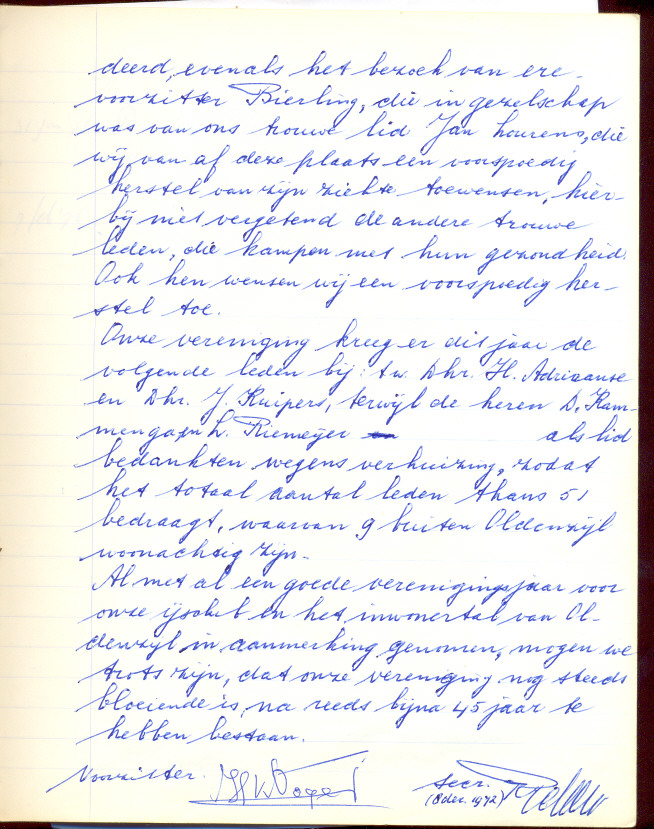 deerd, evenals het bezoek van ere-
voorzitter Bierling, die in gezelschap
was van ons trouwe lid Jan Lourens, die
wij van af deze plaats een voorspoedig
herstel van zijn ziekte toewensen, hier-
bij niet vergetend de andere trouwe
leden, die kampen met hun gezondheid.
Ook hen wensen wij een voorspoedig her-
stel toe.
Onze vereniging kreeg er dit jaar de
volgende leden bij: t.w. Dhr. H. Adriaanse
en Dhr. J. Kuipers, terwijl de heren D. Kam-
menga en L. Riemeijer als lid
bedankten wegens verhuizing, zodat
het totaal aantal leden thans 51
bedraagt, waarvan 9 buiten Oldenzijl
woonachtig zijn.
Al met al een goede verenigingsjaar voor
onze ijsclub en het inwonertal van Ol-
denzijl in aanmerking genomen, mogen we
trots zijn, dat onze vereniging nog steeds
bloeiende is, na reeds bijna 45 jaar te
hebben bestaan.
Voorzitter. secr.
(8 dec. 1972)